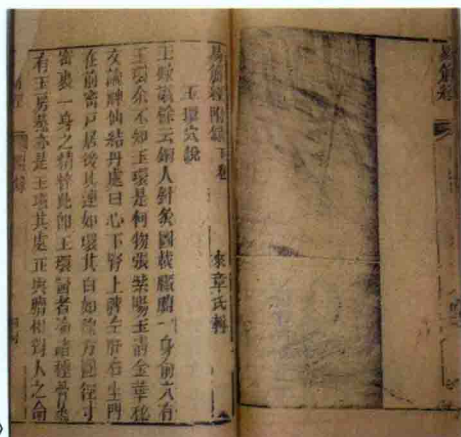 易筋經
易筋經附錄下卷
來章氏輯
玉環穴說
王錄識餘云銅人針灸圖載臟腑一身俞穴有
玉環余不知玉環是何物張紫陽玉清金華秘
文論神仙結丹處曰心下腎上脾左肝右生門
在前密戶居後其連如環其白如綿方圓徑寸
密裹一身之精粹此即玉環醫者論諸種骨蒸
有玉房蒸亦是玉環其處正與臍相對人之命
附錄